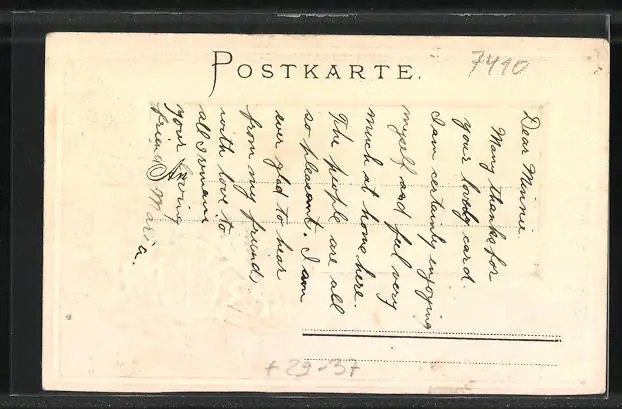 POSTKARTE.
7410
Dear Minnie.
Many thanks for
your lovely card.
I am certainly enjoying
myself and feel very
much at home here.
The people are all
so pleasant. I am
ever glad to hear
from my friends
with love to
all I remain
your loving
friend
Maria.
+ 29-37